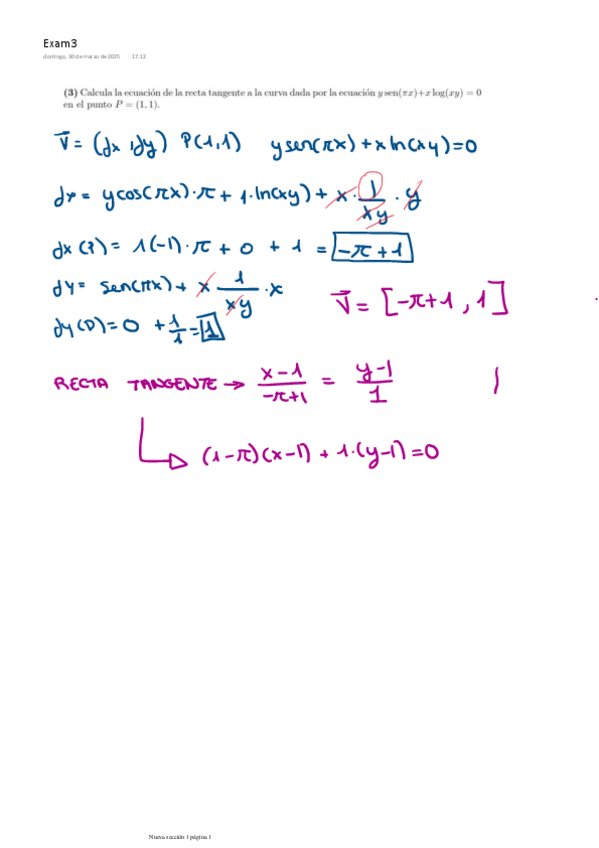 Exam3
domingo, 30 de marzo de 2025 17:12
(3) Calcula la ecuación de la recta tangente a la curva dada por la ecuación y sen(πx)+x log(xy) = 0
en el punto P = (1, 1).
V⃗ = (dx, dy) P(1,1) y sen(πx) + x ln(xy) = 0
dx = y cos(πx)·π + 1·ln(xy) + x · 1/xy · y
dx(P) = 1(-1)·π + 0 + 1 = -π+1
dy = sen(πx) + x 1/xy · x
V⃗ = [-π+1, 1]
dy(P) = 0 + 1/1 = 1
RECTA TANGENTE → x-1/-π+1 = y-1/1
(1-π)(x-1) + 1·(y-1) = 0
Nueva sección 1 página 1